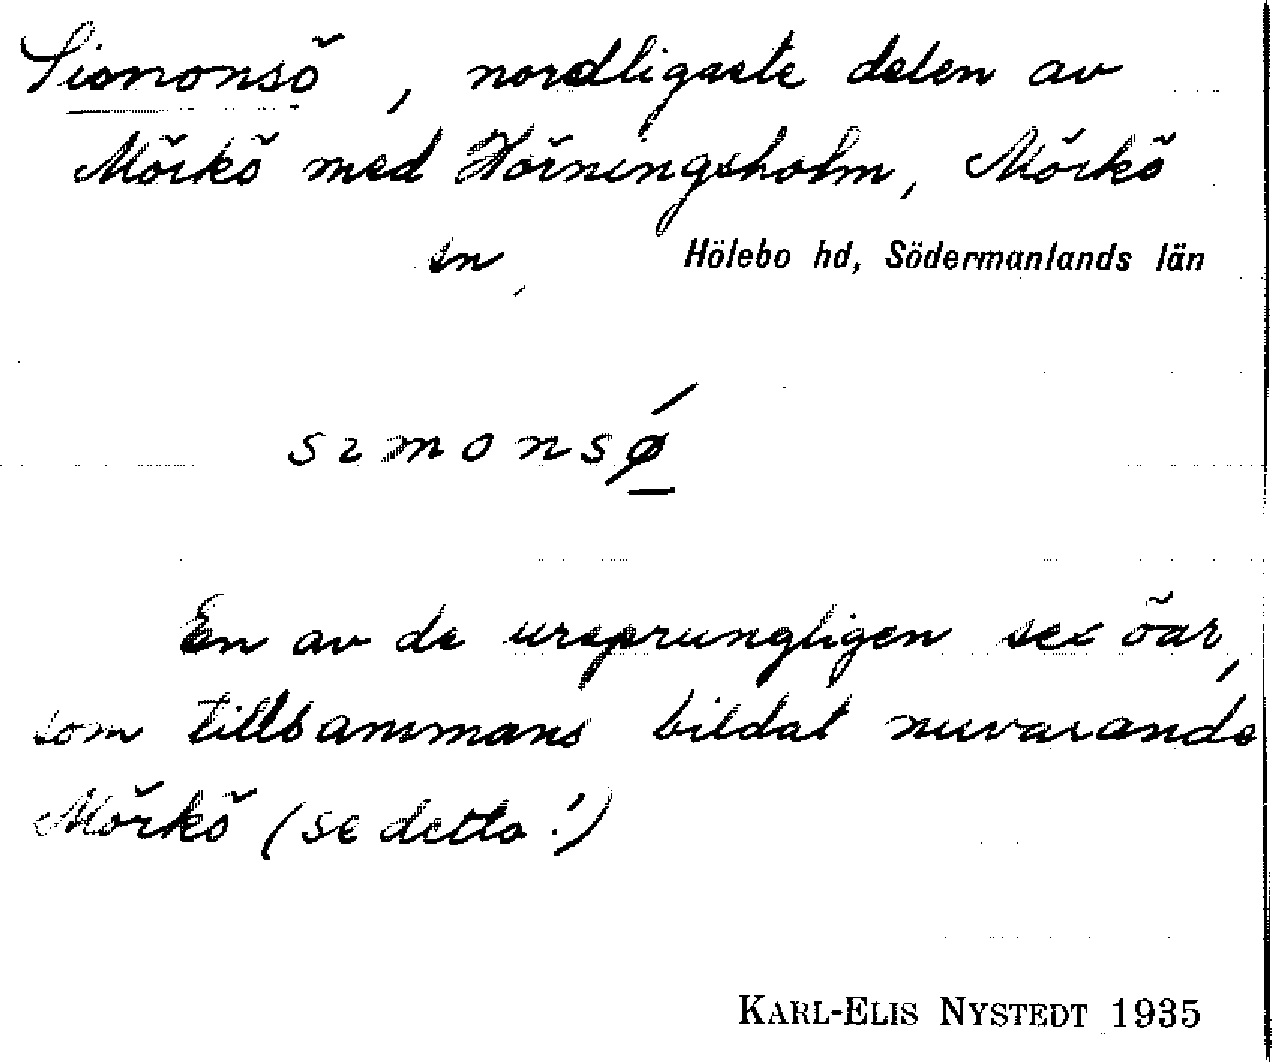 Simonsö, nordligaste delen av
Mörkö med Hörningsholm, Mörkö
sn, Hölebo hd, Södermanlands län
sımonsǿ̱
En av de ursprungligen sex öar,
som tillsammans bildat nuvarande
Mörkö (se detta!)
KARL-ELIS NYSTEDT 1935